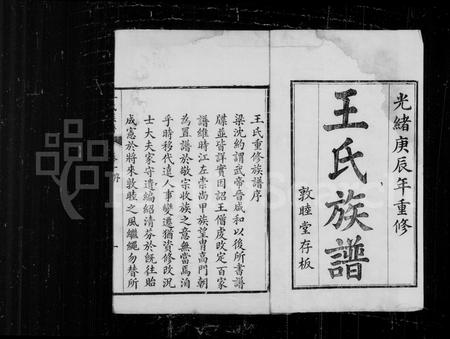 光緒庚辰年重修
王氏族譜
敦睦堂存板
王氏重修族譜序
梁沈約謂武帝晉咸和以後所書譜
牒並皆詳實因詔王僧虔改定百家
譜維時江左崇尚甲族望胄高門朝
為置譜於敬宗收族之意無當焉洎
乎時移代遠人事變遷猶資修改況
士大夫家守遺編紹清芬於既往貽
成憲於將來敦睦之風繼繩勿替所